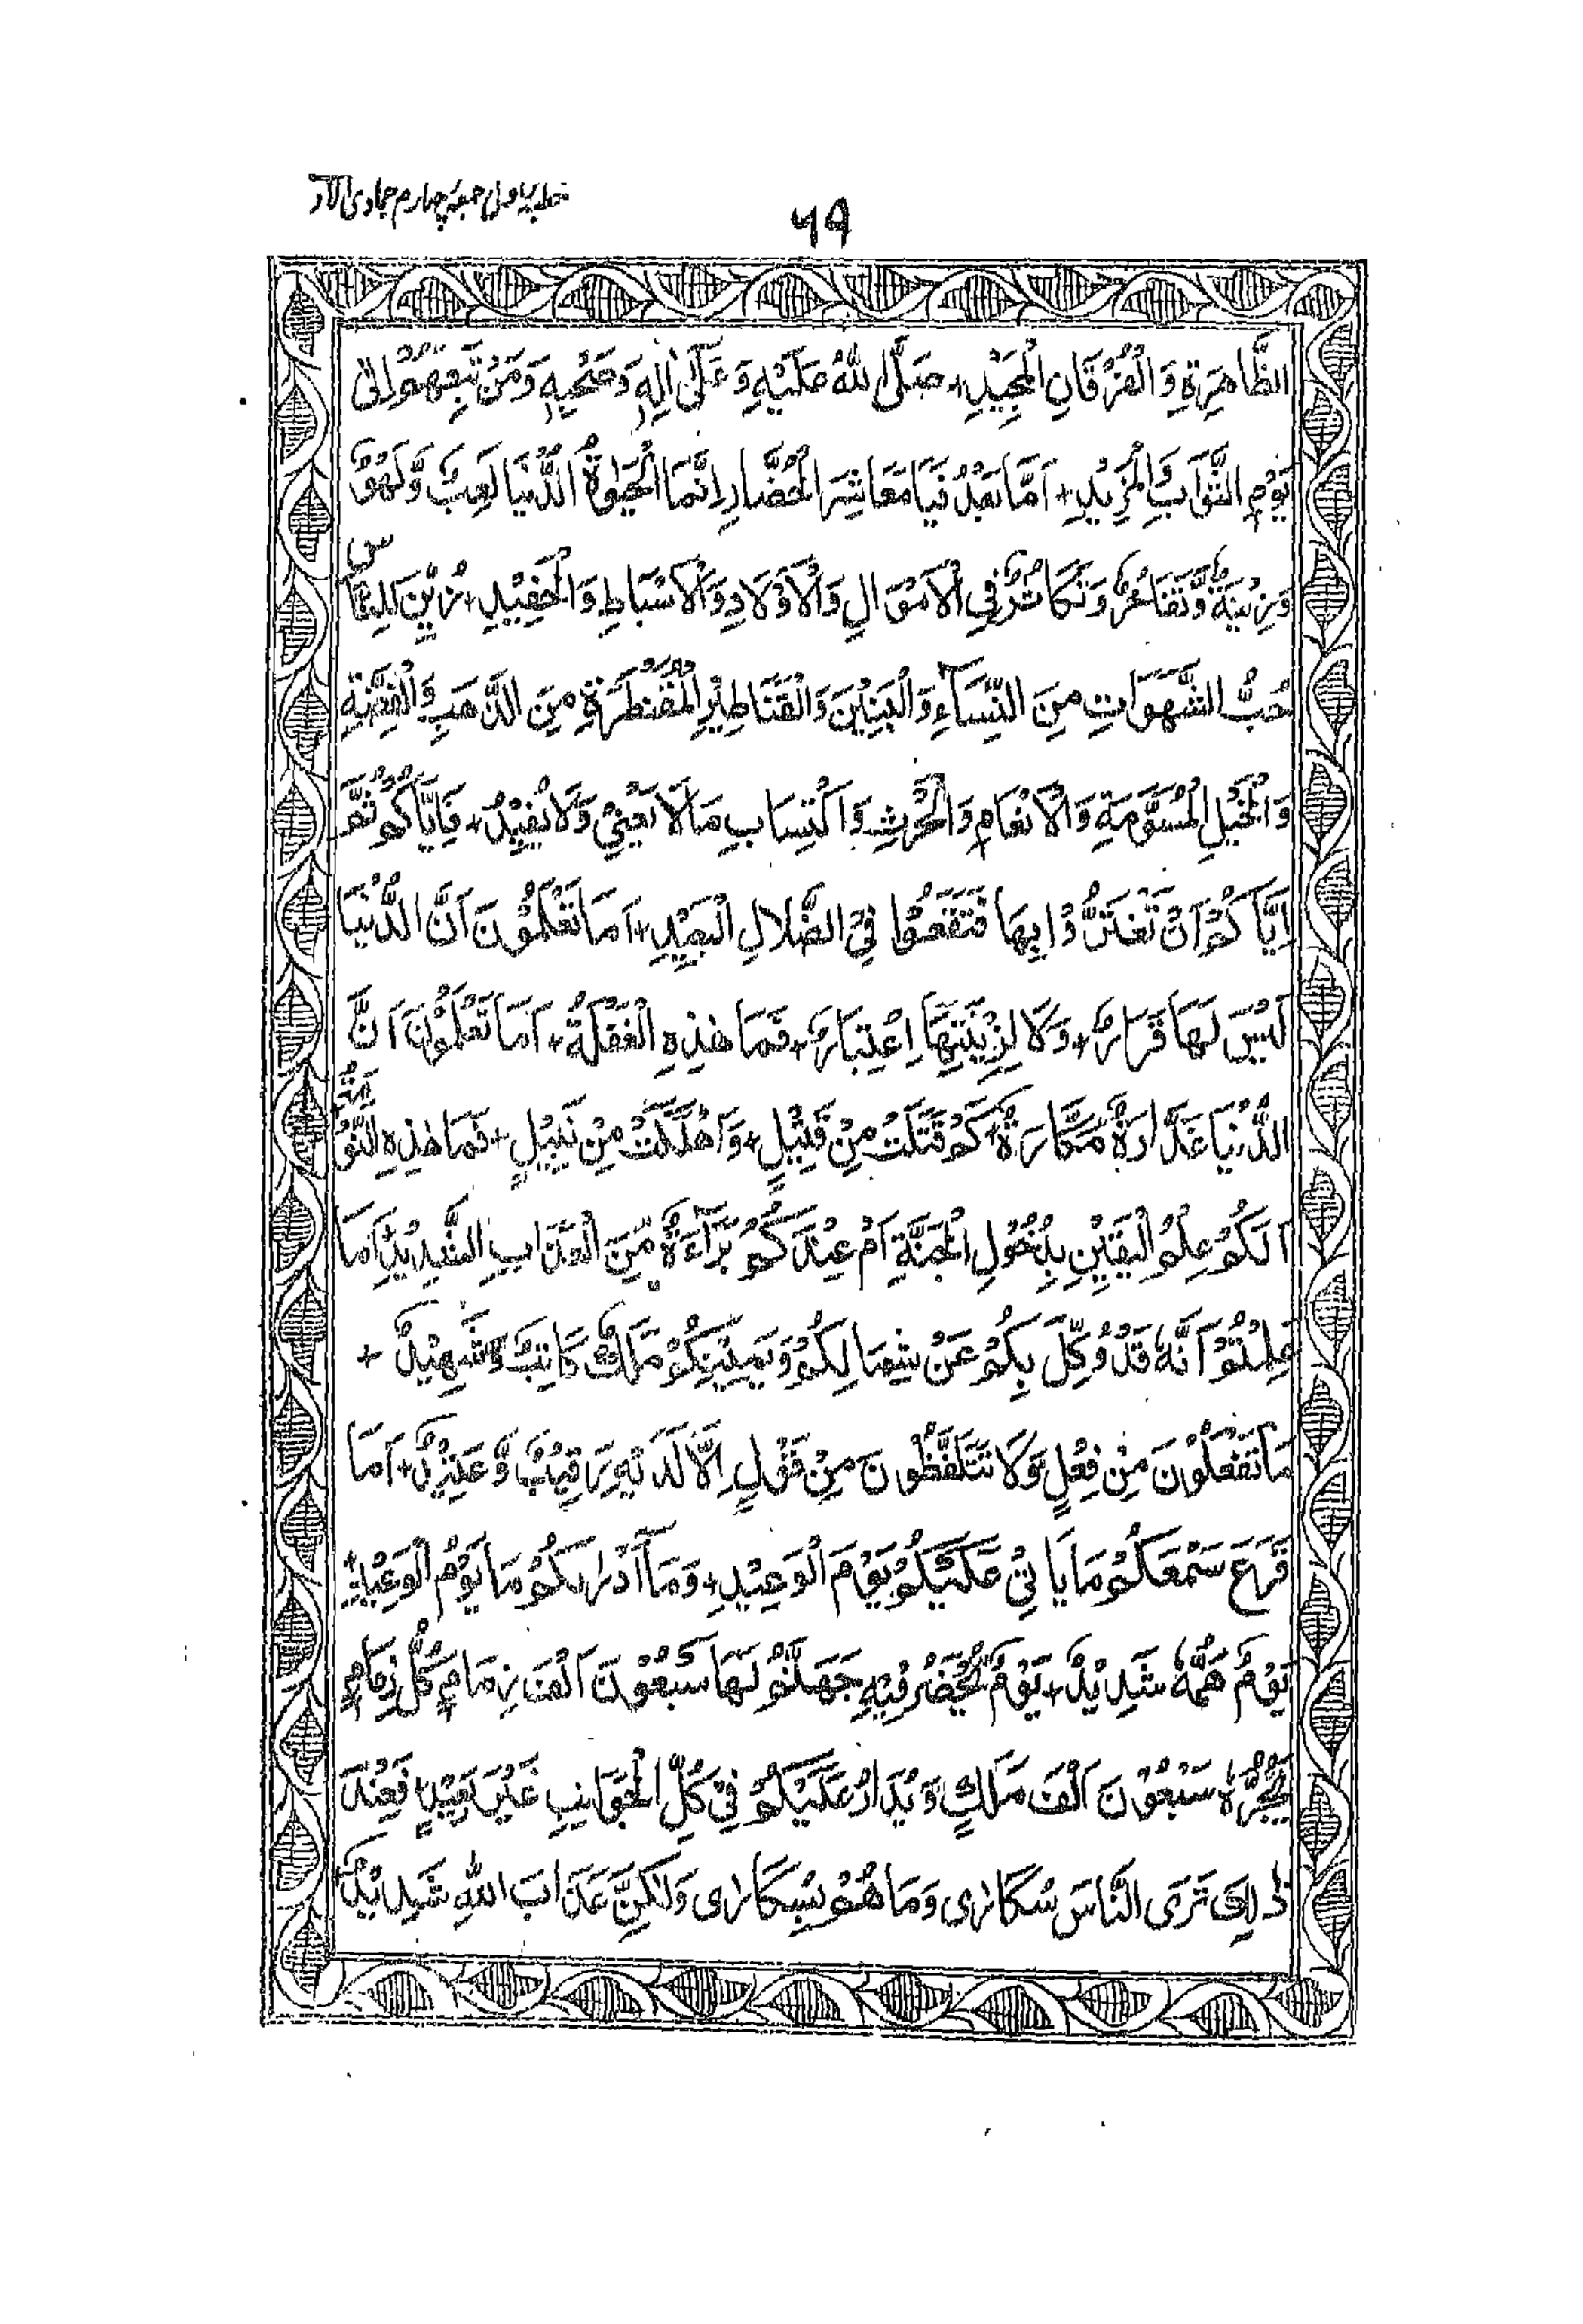 خطبہ اولیٰ جمعہ چہارم جمادی الآخر
٦٩
الظَّاهِرَةِ وَالْفُرْقَانِ الْمَجِيْدِ + صَلَّى اللهُ عَلَيْهِ وَعَلٰى اٰلِهٖ وَصَحْبِهٖ وَمَنْ تَبِعَهُمْ اِلٰى
يَوْمِ الثَّوَابِ وَالْمَزِيْدِ + اَمَّا بَعْدُ فَيَا مَعَاشِرَ الْحُضَّارِ اِنَّمَا الْحَيٰوةُ الدُّنْيَا لَعِبٌ وَّلَهْوٌ
وَّزِيْنَةٌ وَّتَفَاخُرٌ وَتَكَاثُرٌ فِي الْاَمْوَالِ وَالْاَوْلَادِ وَالْاَسْبَاطِ وَالْحَفِيْدِ + زُيِّنَ لِلنَّاسِ
حُبُّ الشَّهَوَاتِ مِنَ النِّسَآءِ وَالْبَنِيْنَ وَالْقَنَاطِيْرِ الْمُقَنْطَرَةِ مِنَ الذَّهَبِ وَالْفِضَّةِ
وَالْخَيْلِ الْمُسَوَّمَةِ وَالْاَنْعَامِ وَالْحَرْثِ وَاكْتِسَابِ مَالَا يَعْنِيْ وَلَا يُفِيْدُ + فَاِيَّاكُمْ ثُمَّ
اِيَّاكُمْ اَنْ تَغْتَرُّوْا بِهَا فَتَقَعُوْا فِي الضَّلَالِ الْبَعِيْدِ + اَمَا تَعْلَمُوْنَ اَنَّ الدُّنْيَا
لَيْسَ لَهَا قَرَارٌ + وَلَا لِزِيْنَتِهَا اِعْتِبَارٌ + فَمَا هٰذِهِ الْغَفْلَةُ + اَمَا تَعْلَمُوْنَ اَنَّ
الدُّنْيَا غَدَّارَةٌ مَكَّارَةٌ + كَمْ قَتَلَتْ مِنْ قَتِيْلٍ + وَاَهْلَكَتْ مِنْ نَبِيْلٍ + فَمَا هٰذِهِ النَّوْمَةُ
اَلَكُمْ عِلْمُ الْيَقِيْنِ بِدُخُوْلِ الْجَنَّةِ اَمْ عِنْدَكُمْ بَرَآءَةٌ مِّنَ الْعَذَابِ الشَّدِيْدِ اَمَا
عَلِمْتُمْ اَنَّهٗ قَدْ وُكِّلَ بِكُمْ عَنْ شِمَالِكُمْ وَيَمِيْنِكُمْ مَلَكٌ كَاتِبٌ وَّشَهِيْدٌ +
مَا تَفْعَلُوْنَ مِنْ فِعْلٍ وَلَا تَتَلَفَّظُوْنَ مِنْ قَوْلٍ اِلَّا لَدَيْهِ رَقِيْبٌ وَّعَتِيْدٌ + اَمَا
قَرَعَ سَمْعَكُمْ مَا يَاتِيْ عَلَيْكُمْ يَوْمَ الْوَعِيْدِ + وَمَآ اَدْرٰىكُمْ مَا يَوْمُ الْوَعِيْدِ
يَوْمٌ هَمُّهٗ شَدِيْدٌ + يَوْمٌ يُحْضَرُ فِيْهِ جَهَنَّمُ لَهَا سَبْعُوْنَ اَلْفَ زِمَامٍ كُلُّ زِمَامٍ
يَجُرُّهٗ سَبْعُوْنَ اَلْفَ مَلَكٍ وَيُدَارُ عَلَيْكُمْ فِيْ كُلِّ الْجَوَانِبِ غَيْرَ بَعِيْدٍ فَعِنْدَ
ذٰلِكَ تَرَى النَّاسَ سُكَارٰى وَمَا هُمْ بِسُكَارٰى وَلٰكِنَّ عَذَابَ اللهِ شَدِيْدٌ